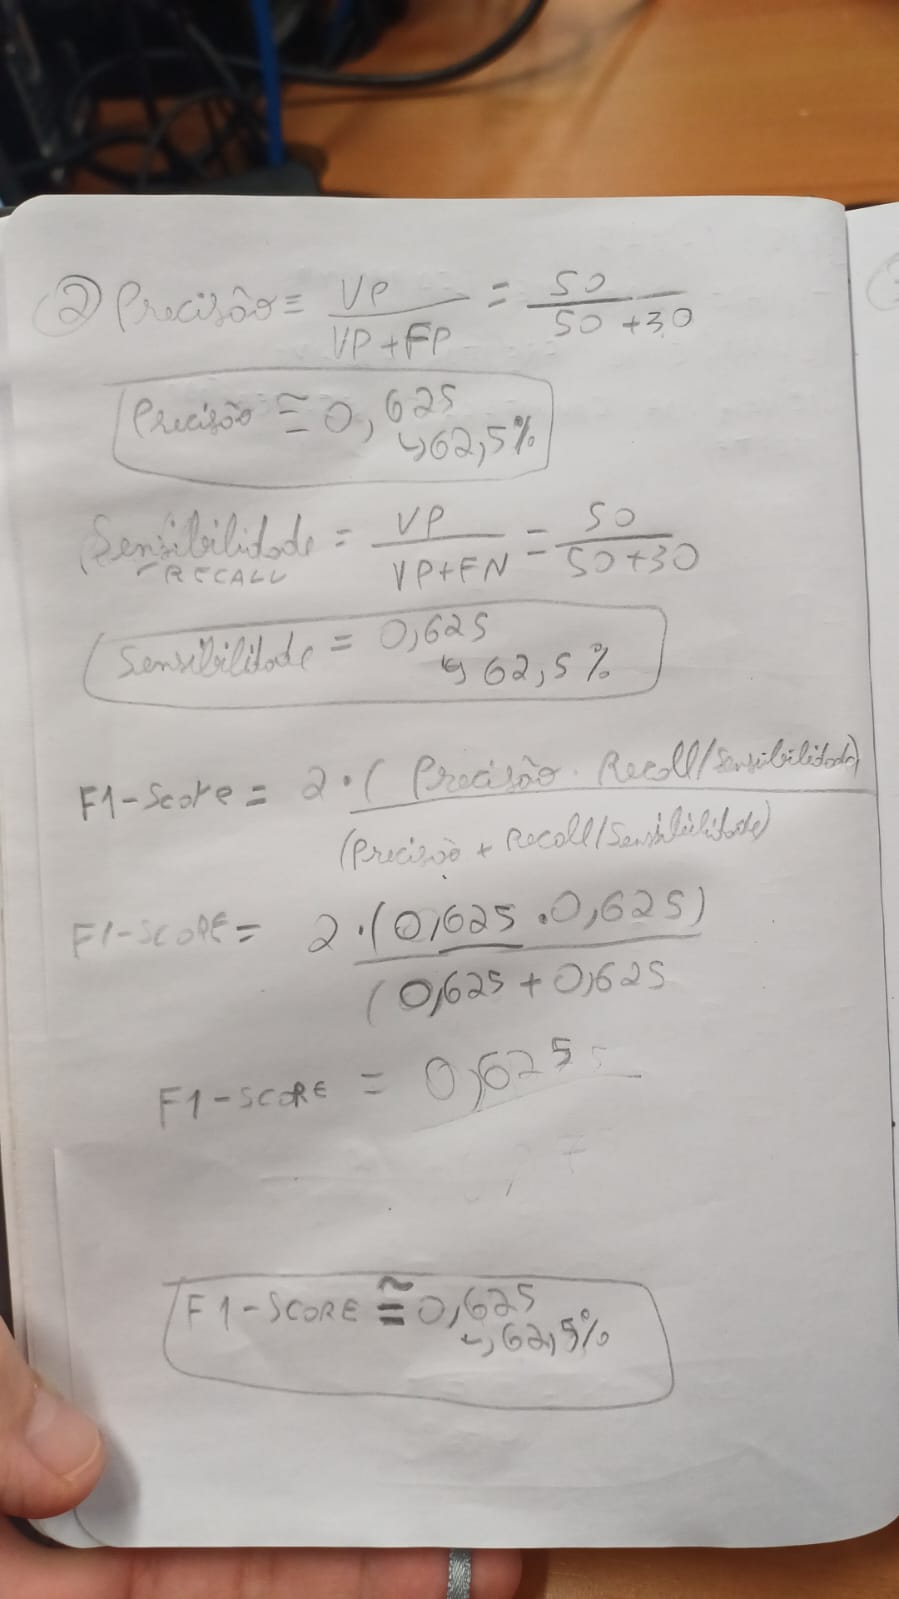 2 Precisão = VP / VP + FP = 50 / 50 + 30
Precisão ≅ 0,625
↳ 62,5%
Sensibilidade = VP / VP + FN = 50 / 50 + 30
RECALL
Sensibilidade = 0,625
↳ 62,5%
F1-Score = 2 · (Precisão · Recall/Sensibilidade) / (Precisão + Recall/Sensibilidade)
F1-SCORE = 2 · (0,625 · 0,625) / (0,625 + 0,625
F1-SCORE = 0,625
F1-SCORE ≅ 0,625
↳ 62,5%